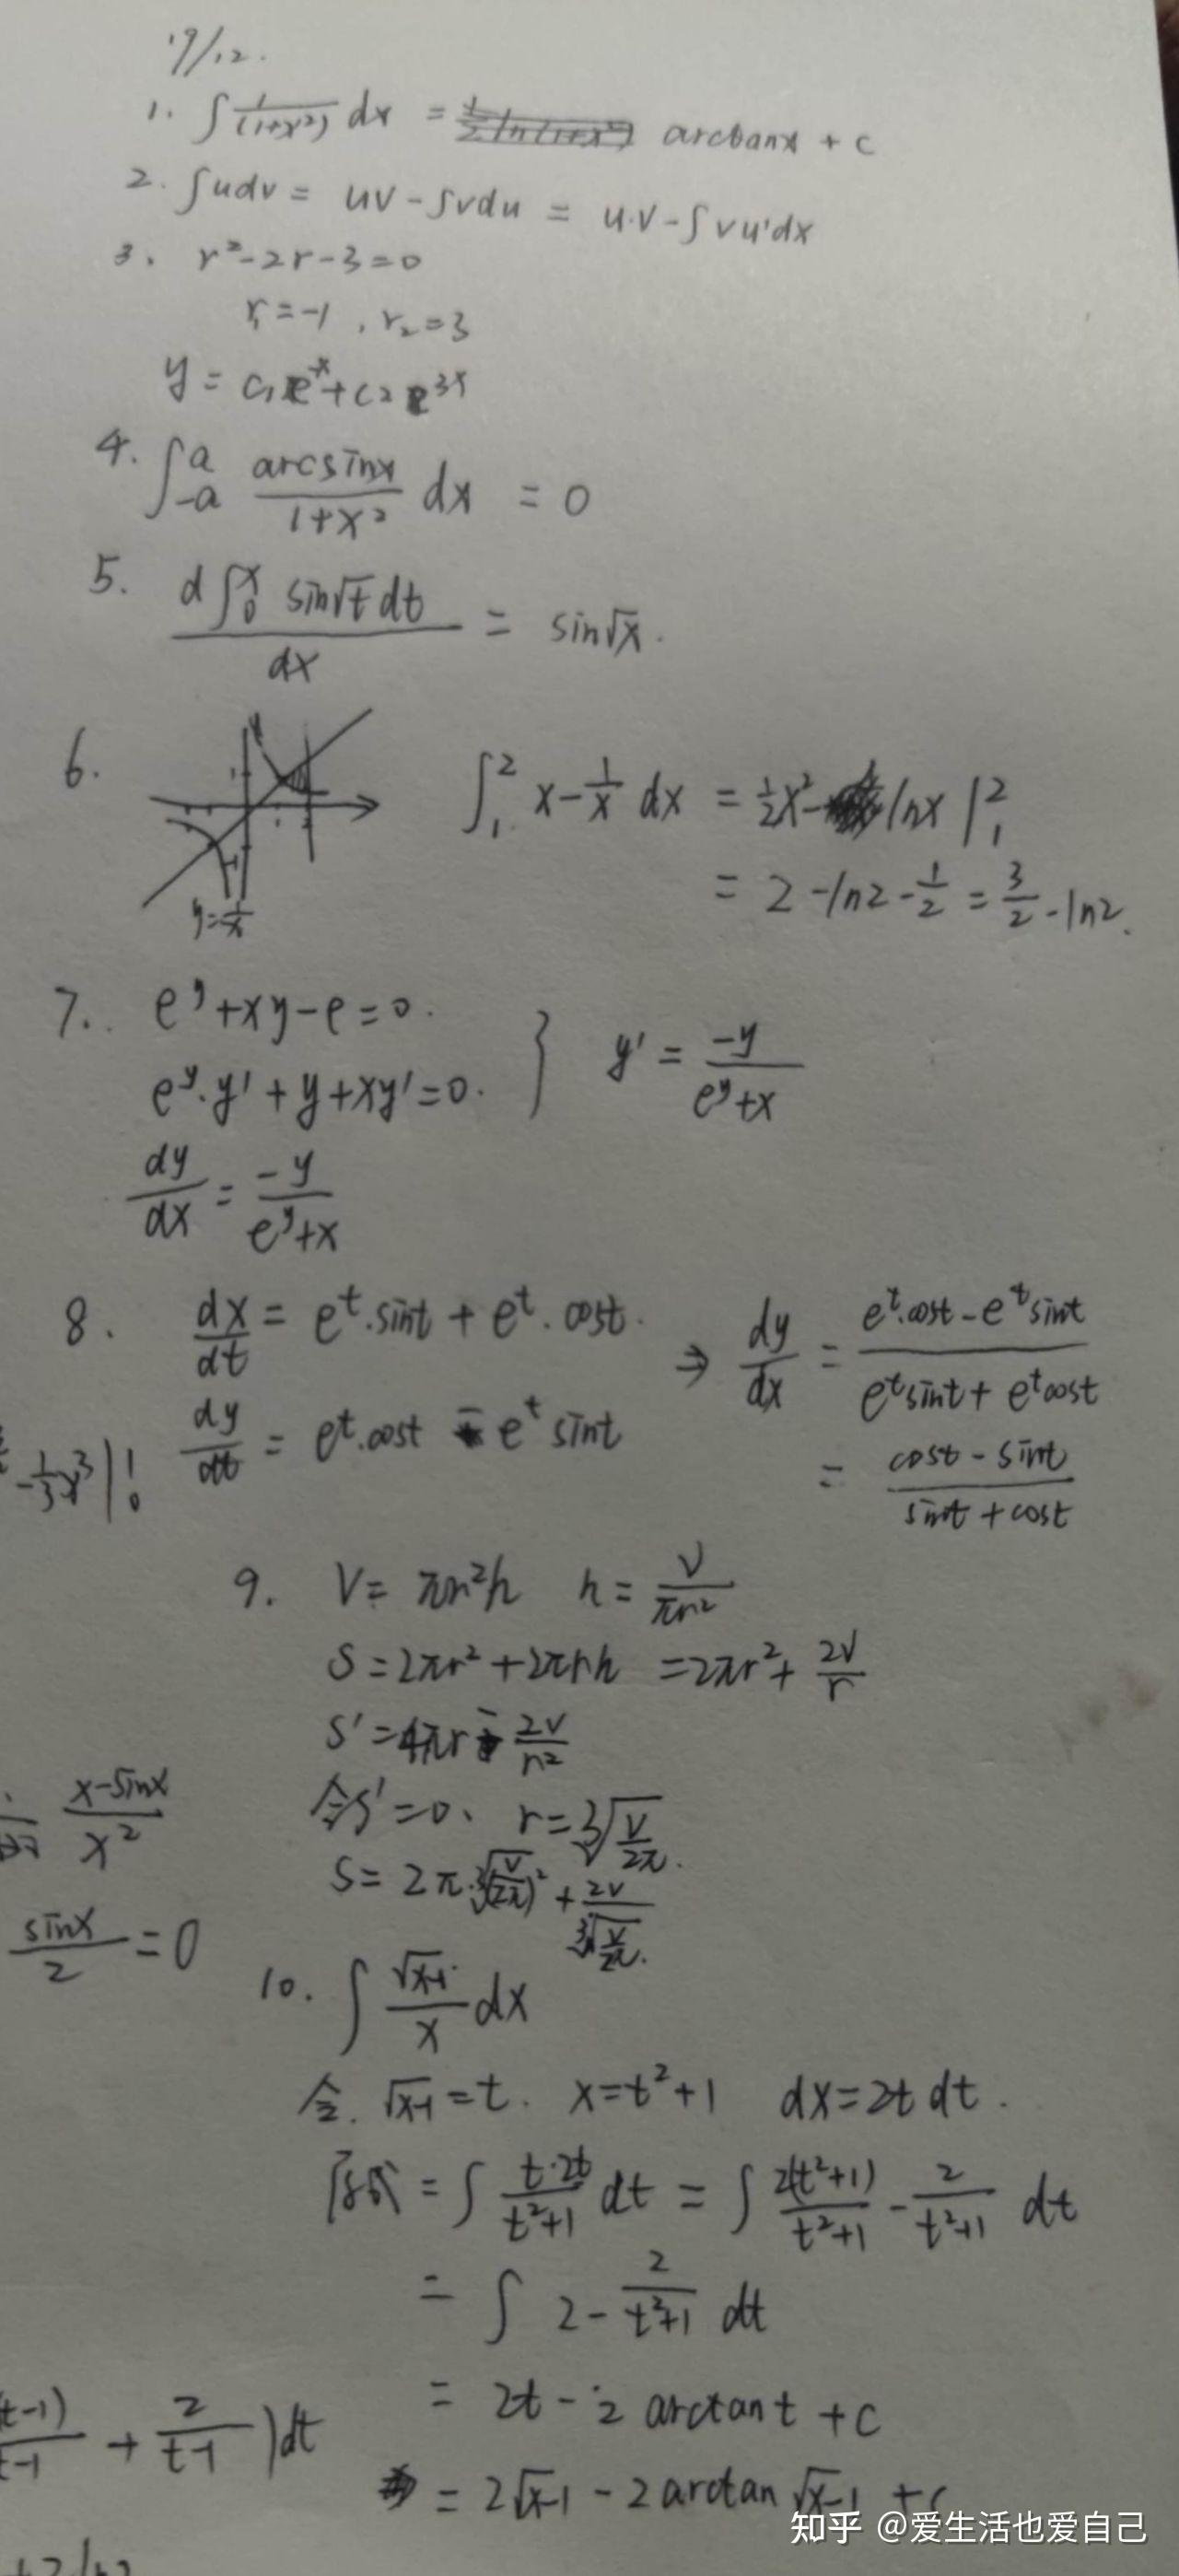 19/12.
1. ∫ 1/(1+x²) dx = arctanx + c
2. ∫udv = uv - ∫vdu = u·v - ∫vu'dx
3. r² - 2r - 3 = 0
r₁ = -1 , r₂ = 3
y = c₁e⁻ˣ + c₂e³ˣ
4. ∫₋ₐᵃ arcsinx/(1+x²) dx = 0
5. d∫₀ˣ sin√t dt / dx = sin√x .
6. ∫₁² x - 1/x dx = ½x² - lnx |₁²
= 2 - ln2 - 1/2 = 3/2 - ln2.
y=1/x
7. e^y + xy - e = 0.
e^y·y' + y + xy' = 0. } y' = -y/(e^y+x)
dy/dx = -y/(e^y+x)
8. dx/dt = e^t·sint + e^t·cost.
dy/dt = e^t·cost - e^t sint
⇒ dy/dx = (e^t·cost - e^t sint)/(e^t sint + e^t cost)
= (cost - sint)/(sint + cost)
- 1/3 x³ |₀¹
9. V = πr²h h = V/πr²
S = 2πr² + 2πrh = 2πr² + 2V/r
S' = 4πr - 2V/r²
令S'=0. r = ³√(V/2π).
S = 2π·³√(V/2π)² + 2V/³√(V/2π).
(x-sinx)/x²
sinx/2 = 0
10. ∫ √(x-1)/x dx
令. √(x-1) = t. x = t²+1 dx = 2t dt.
原式 = ∫ t·2t/(t²+1) dt = ∫ 2(t²+1)/(t²+1) - 2/(t²+1) dt
= ∫ 2 - 2/(t²+1) dt
= 2t - 2 arctant + c
= 2√(x-1) - 2arctan√(x-1) + c
(t-1)/(t-1) + 2/(t-1) )dt
知乎 @爱生活也爱自己